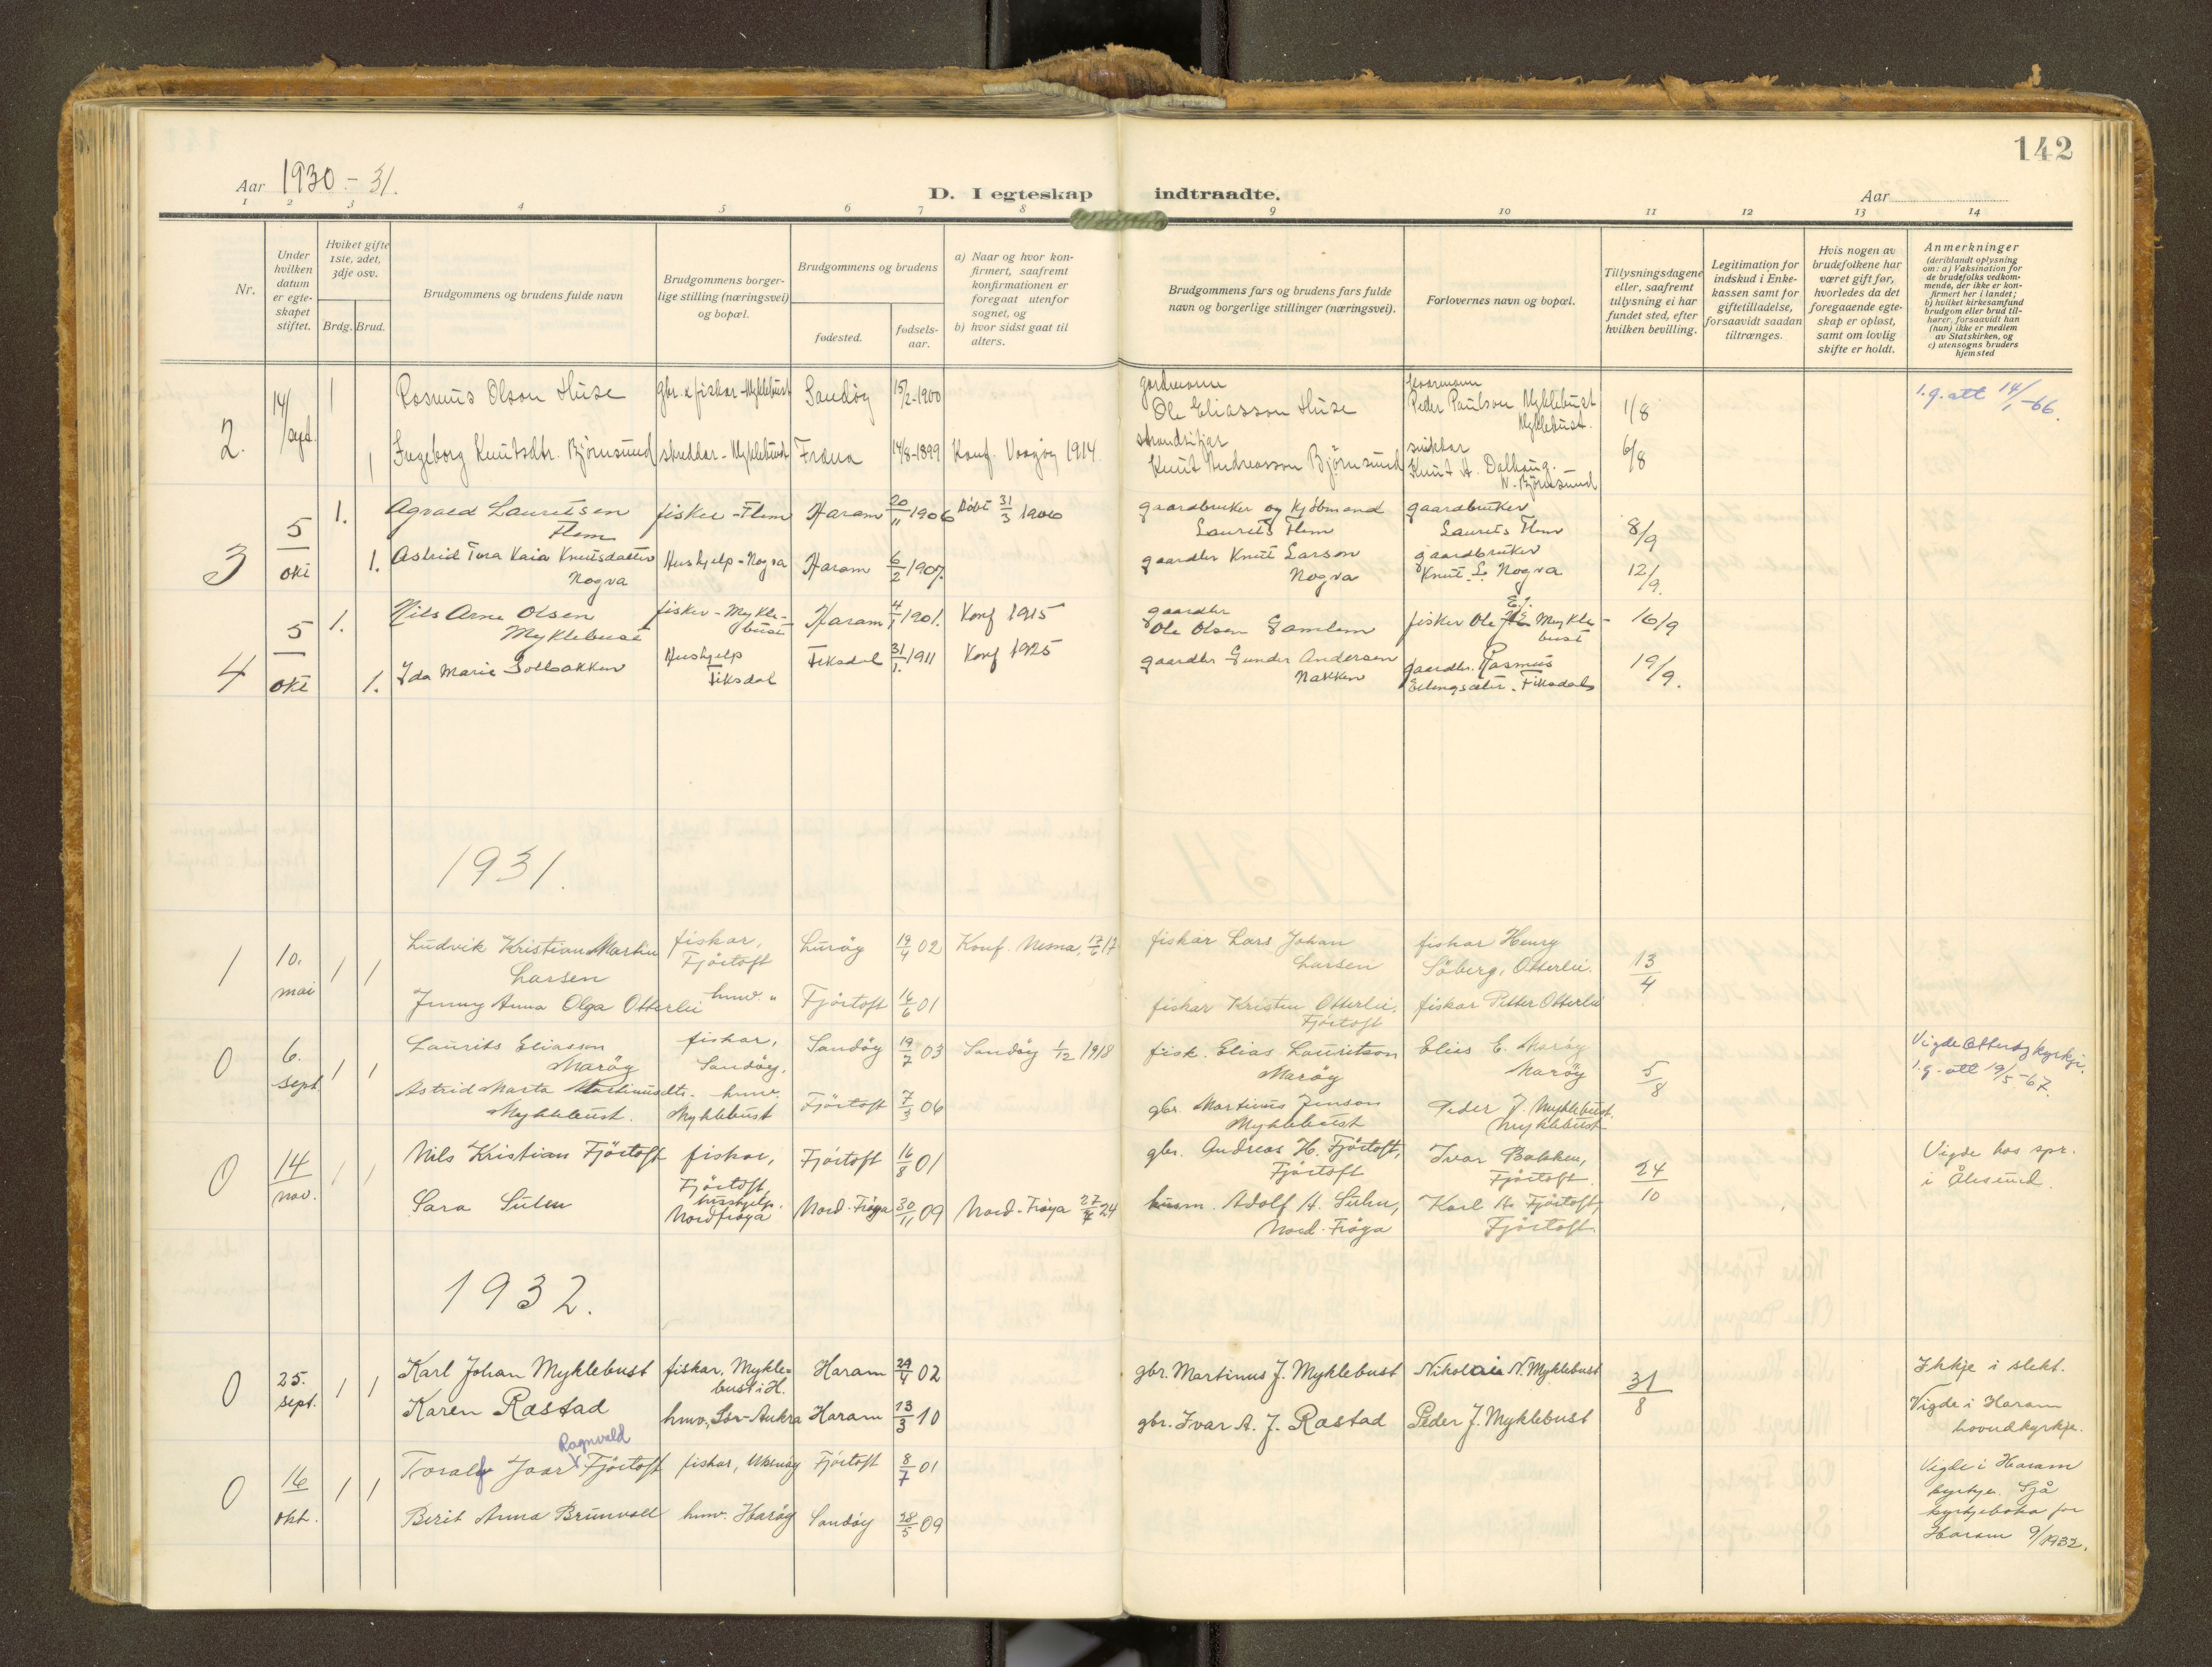 142
Aar 1930.-31.
D. I egteskap indtraadte.
Aar
1 2 3 4 5 6 7 8 9 10 11 12 13 14
Nr.
Under hvilken datum er egteskapet stiftet.
Hviket gifte 1ste, 2det, 3dje osv.
Brdg. Brud.
Brudgommens og brudens fulde navn
Brudgommens borgerlige stilling (næringsvei) og bopæl.
Brudgommens og brudens
fødested.
fødselsaar.
a) Naar og hvor konfirmert, saafremt konfirmationen er foregaat utenfor sognet, og
b) hvor sidst gaat til alters.
Brudgommens fars og brudens fars fulde navn og borgerlige stillinger (næringsvei).
Forlovernes navn og bopæl.
Tillysningsdagene eller, saafremt tillysning ei har fundet sted, efter hvilken bevilling.
Legitimation for indskud i Enkekassen samt for giftetilladelse, forsaavidt saadan tiltrænges.
Hvis nogen av brudefolkene har været gift før, hvorledes da det foregaaende egteskap er opløst, samt om lovlig skifte er holdt.
Anmerkninger
(deriblandt oplysning om: a) Vaksination for de brudefolks vedkommende, der ikke er konfirmert her i landet;
b) hvilket kirkesamfund brudgom eller brud tilhører, forsaavidt han (hun) ikke er medlem av Statskirken, og
c) utensogns bruders hjemsted
2. 14/sept. 1 Rasmus Olson Huse gbr. & fiskar - Myklebust Sandøy 15/2-1900 gardmann Ole Eliasson Huse Peder Paulson Myklebust Myklebust. 1/8 1.g. att 14/1-66.
1 Ingeborg Knutsdtr. Björnsund Myklebust Fræna 14/8-1899 Konf. Vaagøy 1914. Knut Andreasson Björnsund Knut A. Dalhaug. N. Björnsund 6/8
3 5/okt 1. Agvald Lauritsen Flem fisker - Flem Haram 20/11 1906 Döbt 31/3 gaardbruker og Kjöbmand Laurits Flem gaardbruker Laurits Flem 8/9
1. Astrid Tora Kaia Knutsdatter Nogva Hushjelp - Nogva Haram 6/2 1907. gaardbr Knut Larson Nogva gaardbruker Knut L. Nogva 12/9.
4 5/okt 1. Nils Arne Olsen Myklebust fisker - Myklebust Haram 4/1 1901. Konf 1915 gaardbr Ole Olsen Gamlem fisker Ole E.J. Myklebust 16/9
1. Ida Marie Solbakken Hushjelp Fiksdal Fiksdal 31/1. 1911 Konf 1925 gaardbr Gunder Andersen Nakken gaardbr. Rasmus Fiksdal 19/9.
1931.
1 10. mai 1 1 Ludvik Kristian Martin Larsen fiskar, Fjörtoft Luröy 19/4 02 Konf. 17 fiskar Lars Johan Larsen fiskar Henry Söberg, Otterlei. 13/4
Jenny Anna Olga Otterlei hmv. " Fjörtoft 16/6 01 fiskar Kristen Otterlei, Fjörtoft fiskar Petter Otterlei
0 6. sept 1 1 Laurits Eliasson Maröy fiskar, Sandöy, Sandöy 19/7 03 Sandöy 1/12 1918 fisk. Elias Lauritson Maröy Elias E. Maröy Maröy 5/8 Vigde Otteröy kyrkje. 1.g. att 19/5-67.
Astrid Marta Martinusdtr. Myklebust. hmv. Myklebust Fjörtoft 7/3 06 gbr. Martinus Jenson Myklebust Peder J. Myklebust. Myklebust
0 14/nov. 1 1 Nils Kristian Fjörtoft fiskar, Fjörtoft, Fjörtoft 16/8 01 gbr. Andreas H. Fjörtoft, Fjörtoft Ivar Bakken, Fjörtoft. 24/10 Vigde hos spr. i Ålesund.
Sara Sulen hushjelp. Nordfröya Nord-Fröya 30/11 09 Nord-Fröya 24 husm. Adolf A. Sulen, Nord-Fröya Karl H. Fjörtoft, Fjörtoft
1932.
0 25. sept. 1 1 Karl Johan Myklebust fiskar, Myklebust i H. Haram 29/4 02 gbr. Martinus J. Myklebust Nikolai N. Myklebust 31/8 Ikkje i slekt.
Karen Rastad hmv, Sør-Aukra Haram 13/3 10 gbr. Ivar A. J. Rastad Peder J. Myklebust Vigde i Haram hovudkyrkje.
0 16/okt. 1 1 Toralf Joar Ragnvald Fjörtoft fiskar, Fjörtoft 8/7 01 Vigde i Haram kyrkje. Sjå kyrkjeboka for Haram 9/1932.
Berit Anna Brunvoll hmv. Haröy Sandöy 28/5 09